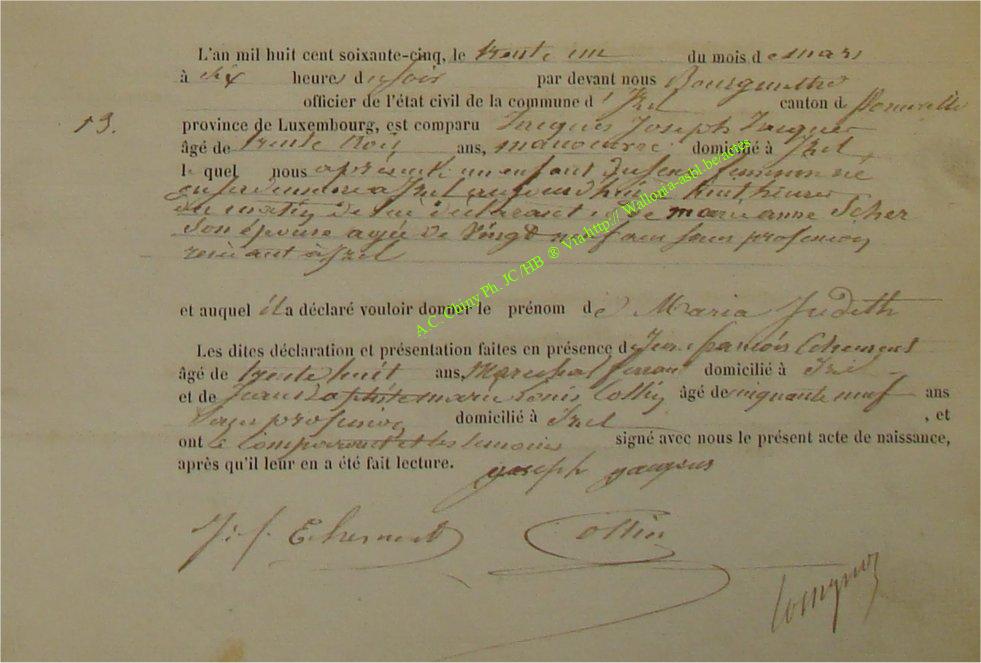 L'an mil huit cent soixante-cinq, le trente un du mois de mars
à six heures du soir par devant nous Bourgmestre
officier de l'état civil de la commune d' Izel canton d
13. province de Luxembourg, est comparu Jacques Joseph Jacques
âgé de trente trois ans, manouvrier domicilié à Izel
lequel nous a présenté un enfant du sexe féminin né
à Izel aujourd'hui à huit heures
du matin de lui déclarant et de marie anne Scher
son épouse agée de vingt neuf ans sans profession
residant à Izel
et auquel il a déclaré vouloir donner le prénom de Maria Judith
Les dites déclaration et présentation faites en présence de Jean françois Echement
âgé de trente huit ans, marechal ferrant domicilié à Izel
et de Jean Baptiste marie Louis Collin âgé de cinquante neuf ans
sans profession domicilié à Izel , et
ont le comparant et les temoins signé avec nous le présent acte de naissance,
après qu'il leur en a été fait lecture. joseph jacques
J. f. Echement Collin
A.C. Chiny Ph. JC/HB ® Via http:// Wallonia-asbl.be/actes